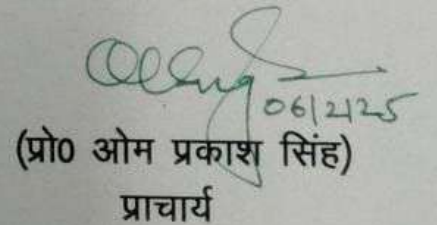 06/2/25
(प्रो0 ओम प्रकाश सिंह)
प्राचार्य